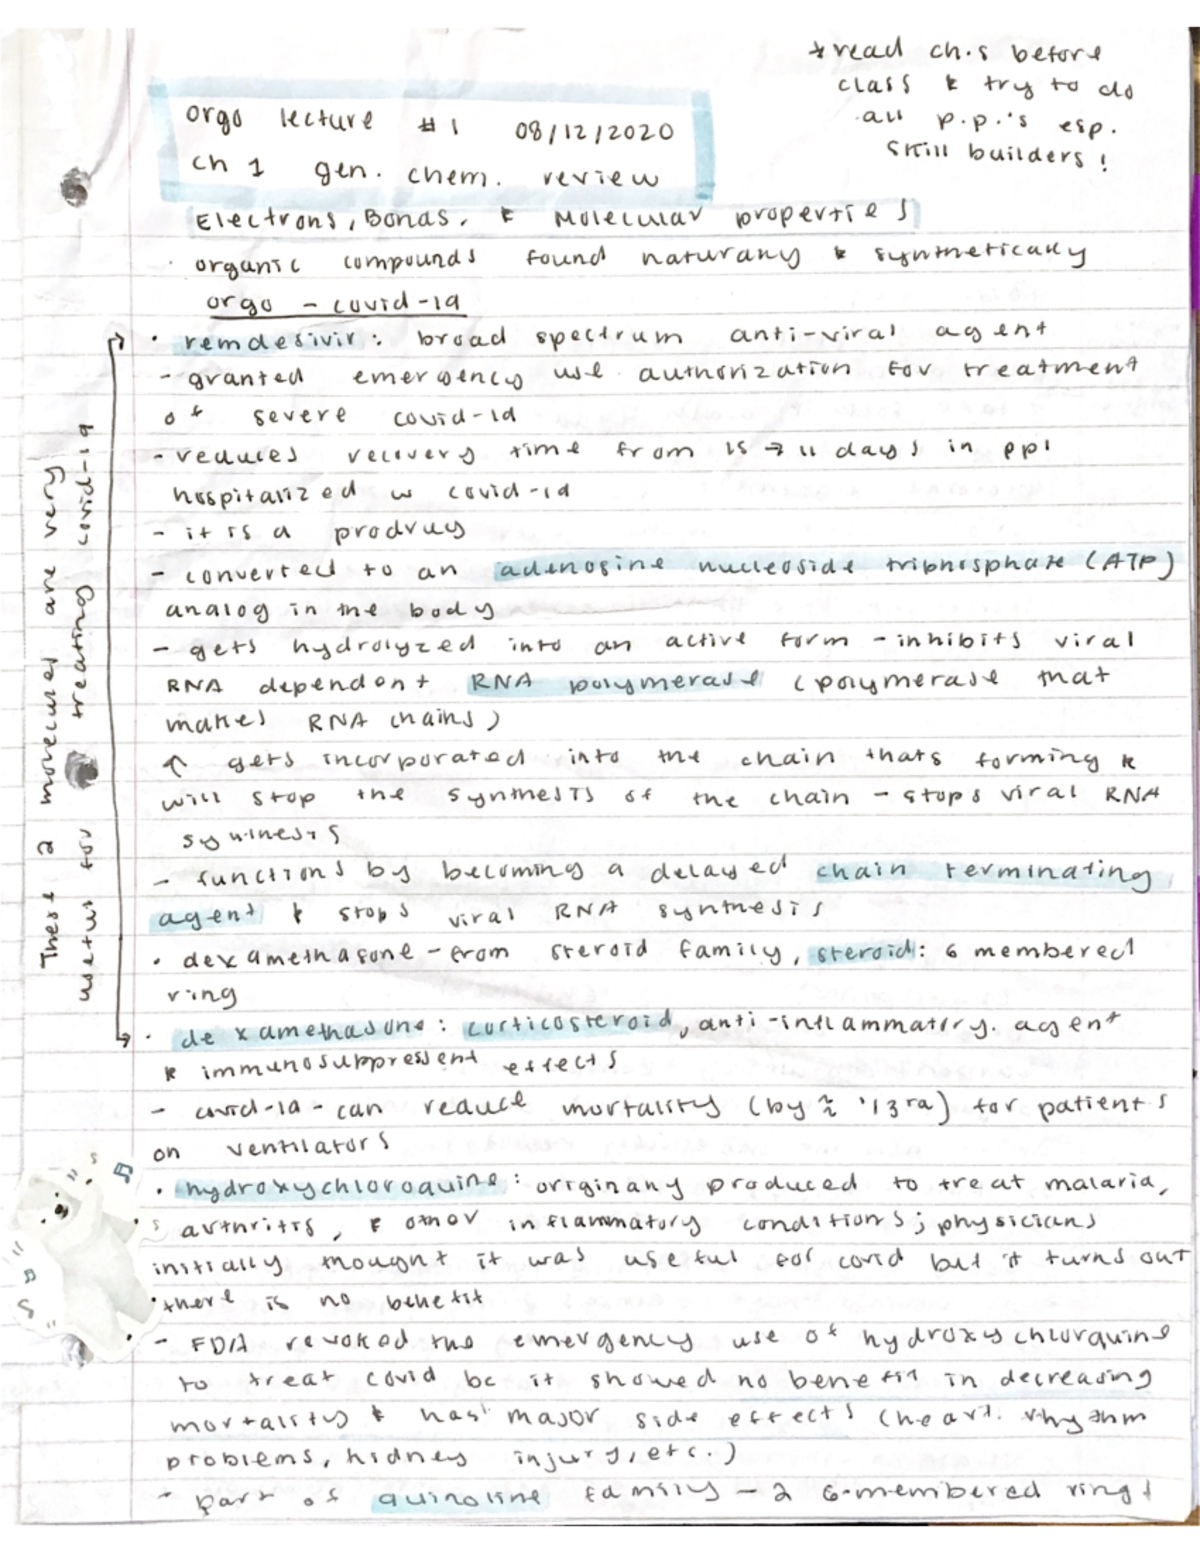 * read ch.s before
class & try to do
all p.p.'s esp.
skill builders!
orgo lecture #1 08/12/2020
ch 1 gen. chem. review
Electrons, Bonds, & Molecular properties
· organic compounds found naturally & synthetically
orgo - covid-19
• remdesivir: broad spectrum anti-viral agent
- granted emergency use authorization for treatment
of severe covid-19
- reduces recovery time from 15 → 11 days in ppl
hospitalized w covid-19
- it is a prodrug
- converted to an adenosine nucleoside triphosphate (ATP)
analog in the body
- gets hydrolyzed into an active form - inhibits viral
RNA dependent RNA polymerase (polymerase that
makes RNA chains)
↑ gets incorporated into the chain thats forming &
will stop the synthesis of the chain - stops viral RNA
synthesis
- functions by becoming a delayed chain terminating
agent & stops viral RNA synthesis
• dexamethasone - from steroid family, steroid: 6 membered
ring
• dexamethasone: corticosteroid, anti-inflammatory. agent
& immunosuppressent effects
- covid-19 - can reduce mortality (by ≈ 1/3rd) for patients
on ventilators
• hydroxychloroquine: originally produced to treat malaria,
arthritis, & other inflammatory conditions; physicians
initially thought it was useful for covid but it turns out
there is no benefit
- FDA revoked the emergency use of hydroxychlorquine
to treat covid bc it showed no benefit in decreasing
mortality & has major side effects (heart rhythm
problems, kidney injury, etc.)
- part of quinoline family - 2 6-membered rings
These 2 molecules are very
useful for treating covid-19